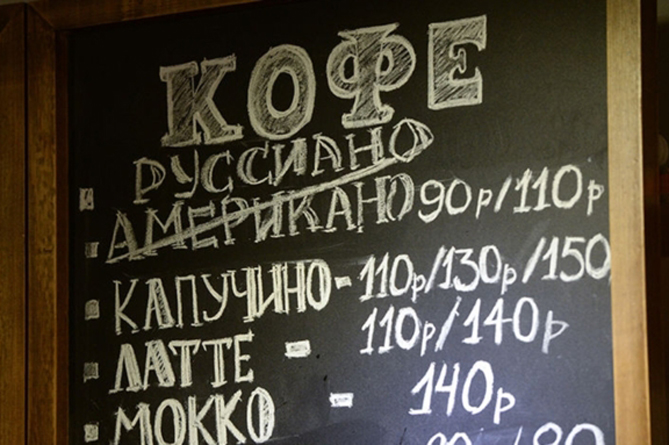 КОФЕ
РУССИАНО
АМЕРИКАНО 90р/110р
КАПУЧИНО - 110р/130р/150
ЛАТТЕ - 110р/140р
МОККО - 140р